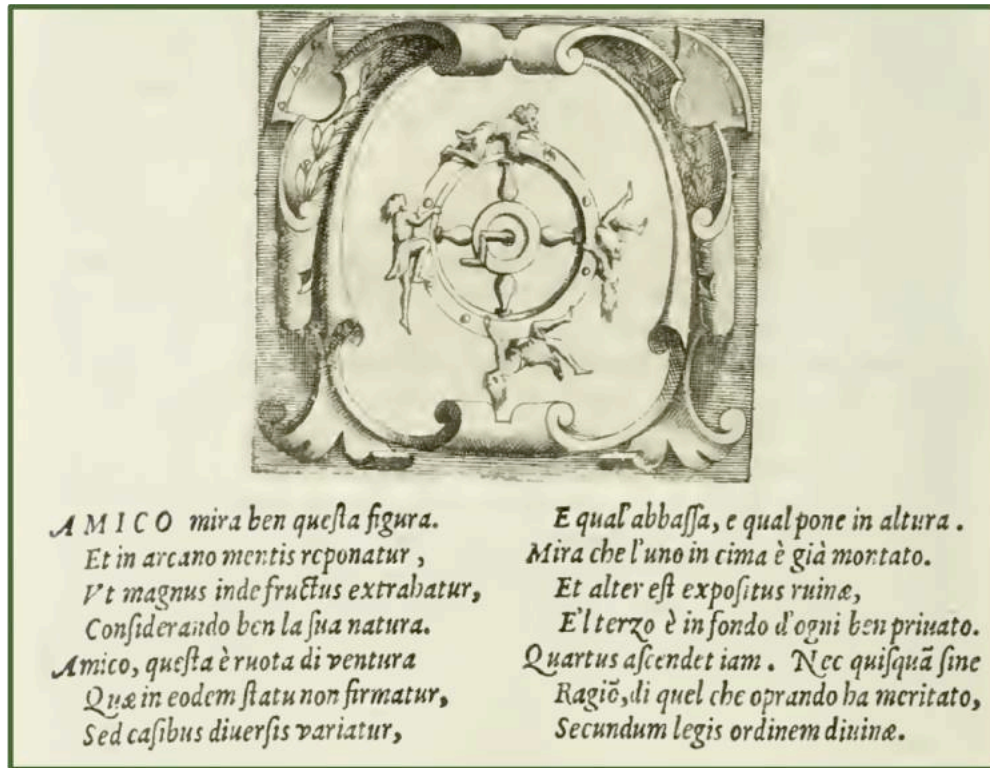 AMICO mira ben queſta figura.
Et in arcano mentis reponatur,
Vt magnus inde fructus extrahatur,
Conſiderando ben la ſua natura.
Amico, queſta è ruota di ventura
Quæ in eodem ſtatu non firmatur,
Sed caſibus diuerſis variatur,
E qual' abbaſſa, e qual pone in altura.
Mira che l'uno in cima è già montato.
Et alter eſt expoſitus ruinæ,
E'l terzo è in fondo d'ogni ben priuato.
Quartus aſcendet iam. Nec quiſquã ſine
Ragiõ, di quel che oprando ha meritato,
Secundum legis ordinem diuinæ.